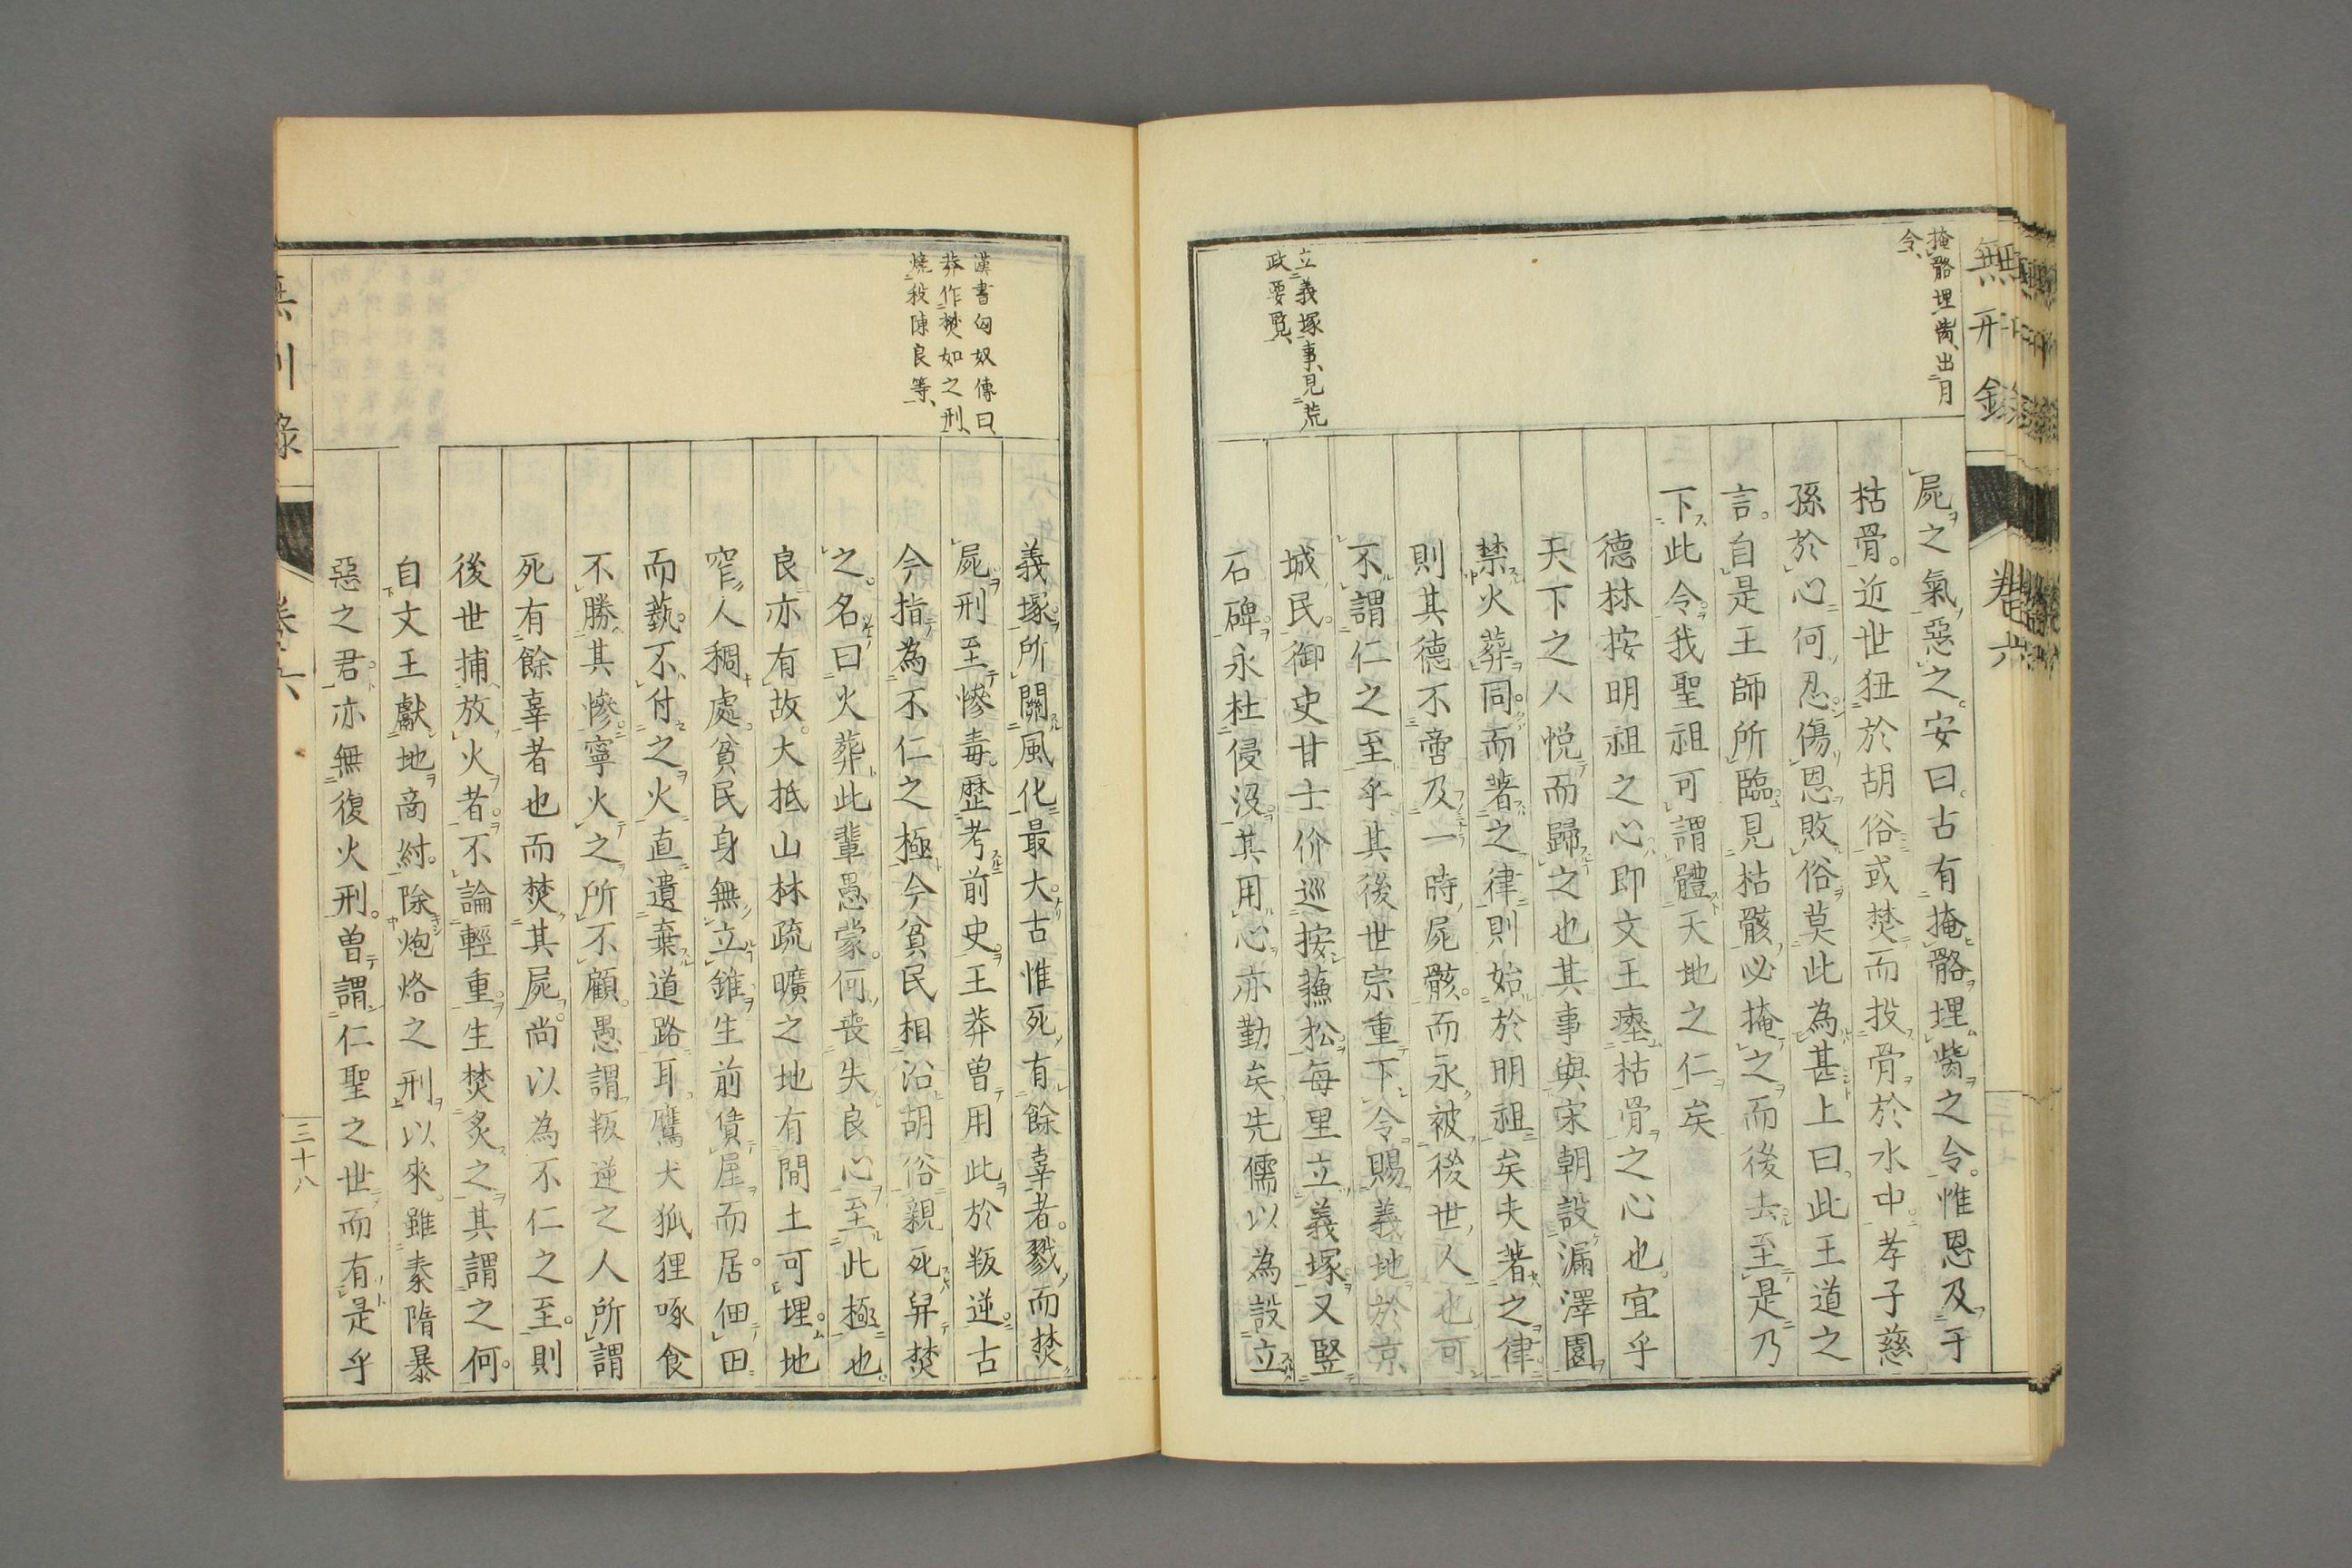 無刑錄
卷六
掩骼埋胔、出月
令、
屍之氣惡之。安曰。古有掩骼埋胔之令。惟恩及于
枯骨。近世狃於胡俗或焚而投骨於水中。孝子慈
孫於心何忍。傷恩敗俗莫此為甚。上曰。此王道之
言。自是王師所臨。見枯骸必掩之而後去。至是乃
下此令。我聖祖可謂體天地之仁矣
德林按明祖之心即文王瘞枯骨之心也。宜乎
天下之人悅而歸之也其事與宋朝設漏澤園
禁火葬同。而著之律則始於明祖矣夫著之律。
則其德不啻及一時屍骸。而永被後世人也可
不謂仁之至乎其後世宗重下令賜義地於京
城民。御史甘士价巡按蘓松每里立義塚。又竪
石碑。永杜侵没。其用心亦勤矣先儒以為設立
立義塚事、見荒
政要覧、
漢書匈奴傳曰、
莽作焚如之刑、
燒殺陳良等、
義塚。所關風化最大。古惟死有餘辜者。戮而焚
屍。刑至慘毒。歷考前史。王莽曽用此於叛逆。古
今指為不仁之極今貧民相沿胡俗親死舁焚
之。名曰火葬此輩愚蒙。何喪失良心至此極也。
良亦有故。大抵山林疏曠之地有閒土可埋。地
窄人稠處。貧民身無立錐。生前賃屋而居。佃田
而蓺。不付之火。直遺棄道路耳鷹犬狐狸啄食
不勝其慘。寧火之所不顧。愚謂叛逆之人所謂
死有餘辜者也而焚其屍。尚以為不仁之至。則
後世捕放火者。不論輕重。生焚炙之其謂之何。
自文王獻地商紂。除炮烙之刑以來。雖秦隋暴
惡之君。亦無復火刑。曽謂仁聖之世而有是乎
三十八